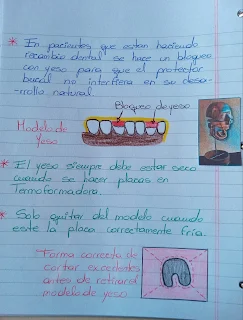 * En pacientes que estan haciendo
recambio dental se hace un bloqueo
con yeso para que el protector
bucal no interfiera en su desa-
rrollo natural.
Bloqueo de yeso
Modelo de
yeso
* El yeso siempre debe estar seco
cuando se hacer placas en
Termoformadora.
* Solo quitar del modelo cuando
este la placa correctamente fria.
Forma correcta de
cortar excedentes
antes de retirar
modelo de yeso